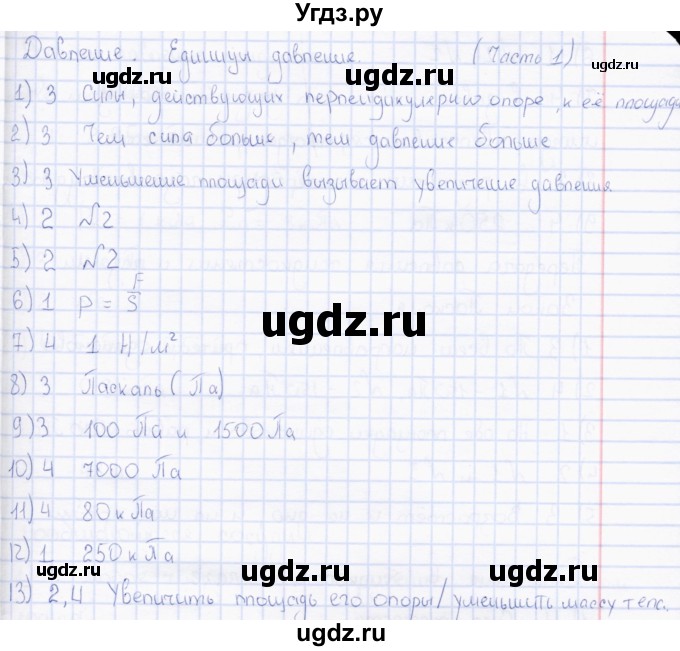 Угдз.ру
Давление. Единицы давления. (Часть 1)
ugdz.ru ugdz.ru ugdz.ru
1) 3 Силы, действующих перпендикулярно опоре, к её площади
2) 3 Чем сила больше, тем давление больше
3) 3 Уменьшение площади вызывает увеличение давления
4) 2 №2
5) 2 №2
6) 1 p = F/S
ugdz.ru
7) 4 1 Н/м²
8) 3 Паскаль (Па)
9) 3 100 Па и 1500 Па
10) 4 7000 Па
11) 4 80 кПа
12) 1 250 кПа
ugdz.ru ugdz.ru ugdz.ru
13) 2,4 Увеличить площадь его опоры/уменьшить массу тела.
ugdz.ru